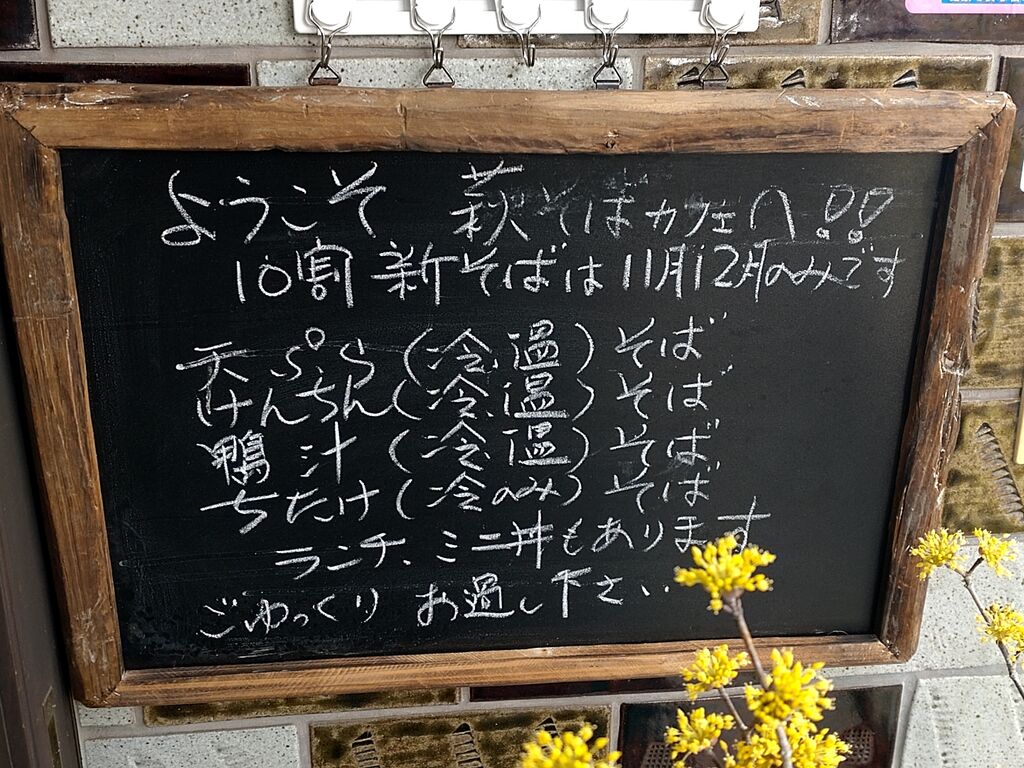 ようこそ 萩そばカフェへ!!
10割新そばは11月12月のみです
天ぷら(冷、温)そば
けんちん(冷、温)そば
鴨汁(冷、温)そば
ちたけ(冷のみ)そば
ランチ、ミニ丼もあります
ごゆっくり お過し下さい